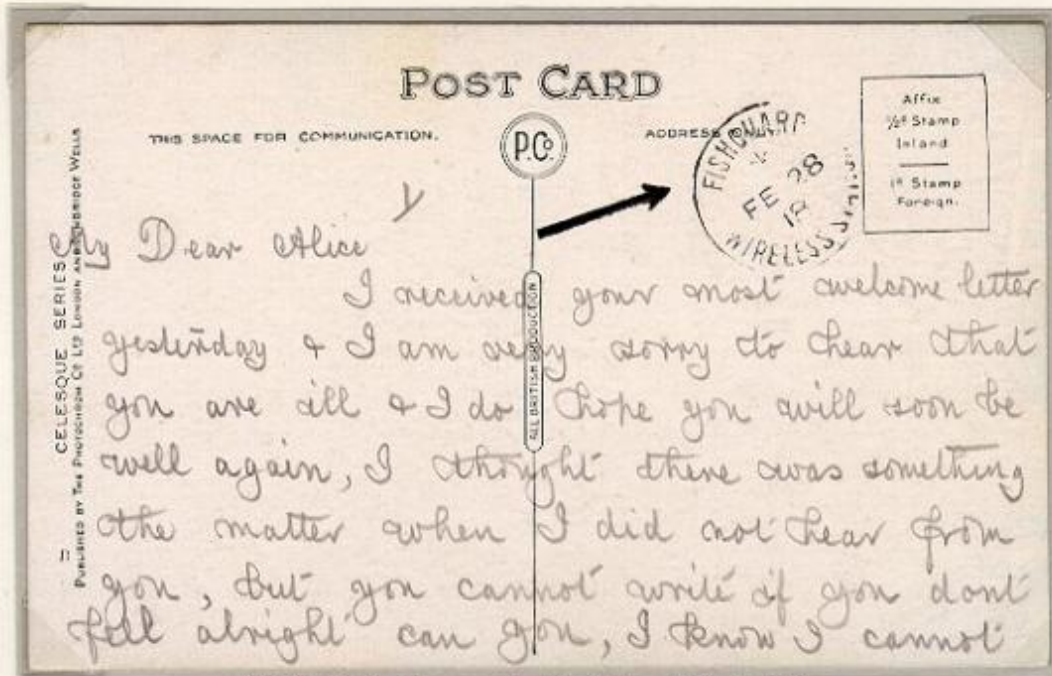 POST CARD
THIS SPACE FOR COMMUNICATION.
P.Co.
ADDRESS ONLY.
FISHGUARD
FE 28
18
WIRELESS
Affix
½d Stamp
Inland
1d Stamp
Foreign.
CELESQUE SERIES
PUBLISHED BY THE PHOTOCHROM Co LTD LONDON AND TUNBRIDGE WELLS
ALL BRITISH PRODUCTION
My Dear Alice
I received your most welcome letter
yesterday & I am very sorry to hear that
you are ill & I do hope you will soon be
well again, I thought there was something
the matter when I did not hear from
you, but you cannot write if you dont
fell alright can you, I know I cannot